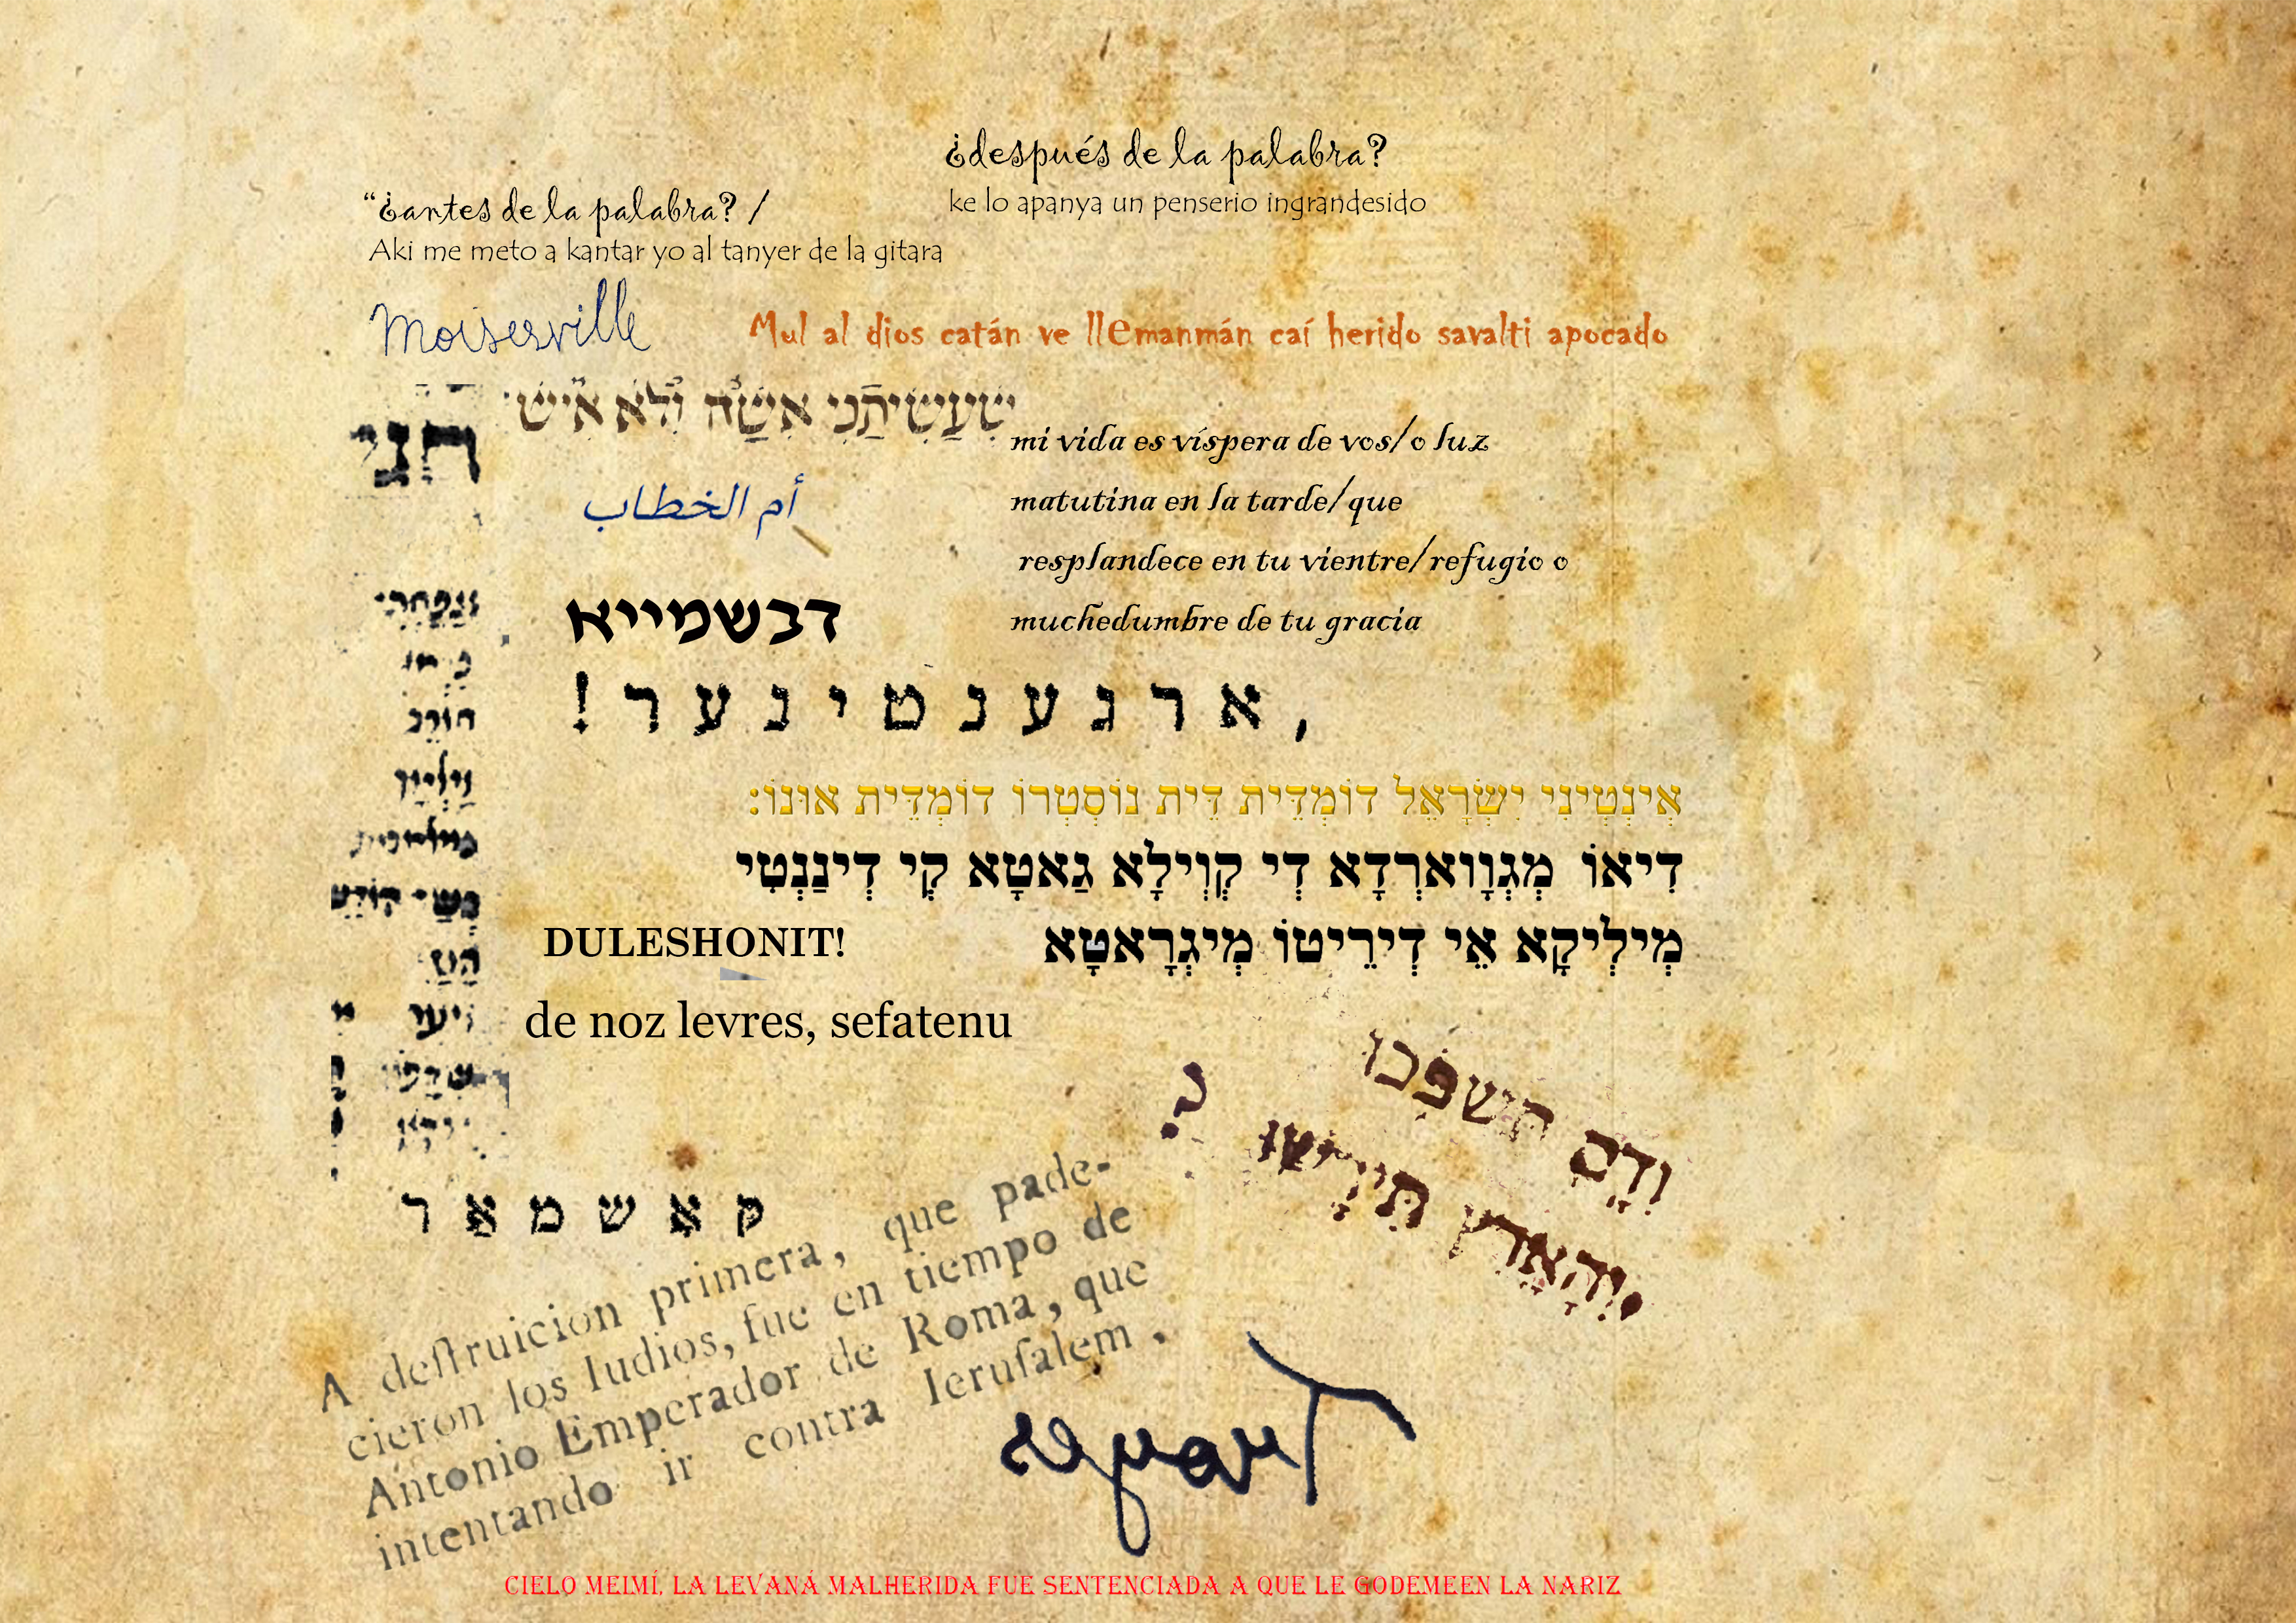 ¿después de la palabra?
ke lo apanya un penserio ingrandesido
“¿antes de la palabra? /
Aki me meto a kantar yo al tanyer de la gitara
Moisesville
Mul al dios catán ve llemanmán caí herido savalti apocado
שֶׁעֲשִׂיתַנִי אִשָּׁה וְלֹא אִישׁ
mi vida es víspera de vos/o luz
matutina en la tarde/que
resplandece en tu vientre/refugio o
muchedumbre de tu gracia
أم الخطاب
דבשמייא
, א ר ג ע נ ט י נ ע ר !
אִינְטִינִי יִשְׂרָאֵל דוֹמְדֵּית דֵּית נוֹסְטְרוֹ דוֹמְדֵּית אוּנוֹ:
דִיאוֹ מְגְוָוארְדָא דְי קְוִילָא גַאטָא קְי דְינַנְטִי
מְילְיקָא אֵי דְירֵיטוֹ מְיגְרָאטָא
DULESHONIT!
de noz levres, sefatenu
וְדָם תִּשְׁפֹּכוּ
וְהָאָרֶץ תִּירָשׁוּ ?
ק אָ ש מ אַ ר
A deſtruicion primera, que pade-
cieron los Iudios, fue en tiempo de
Antonio Emperador de Roma, que
intentando ir contra Ieruſalem.
CIELO MEIMÍ, LA LEVANÁ MALHERIDA FUE SENTENCIADA A QUE LE GODEMEEN LA NARIZ